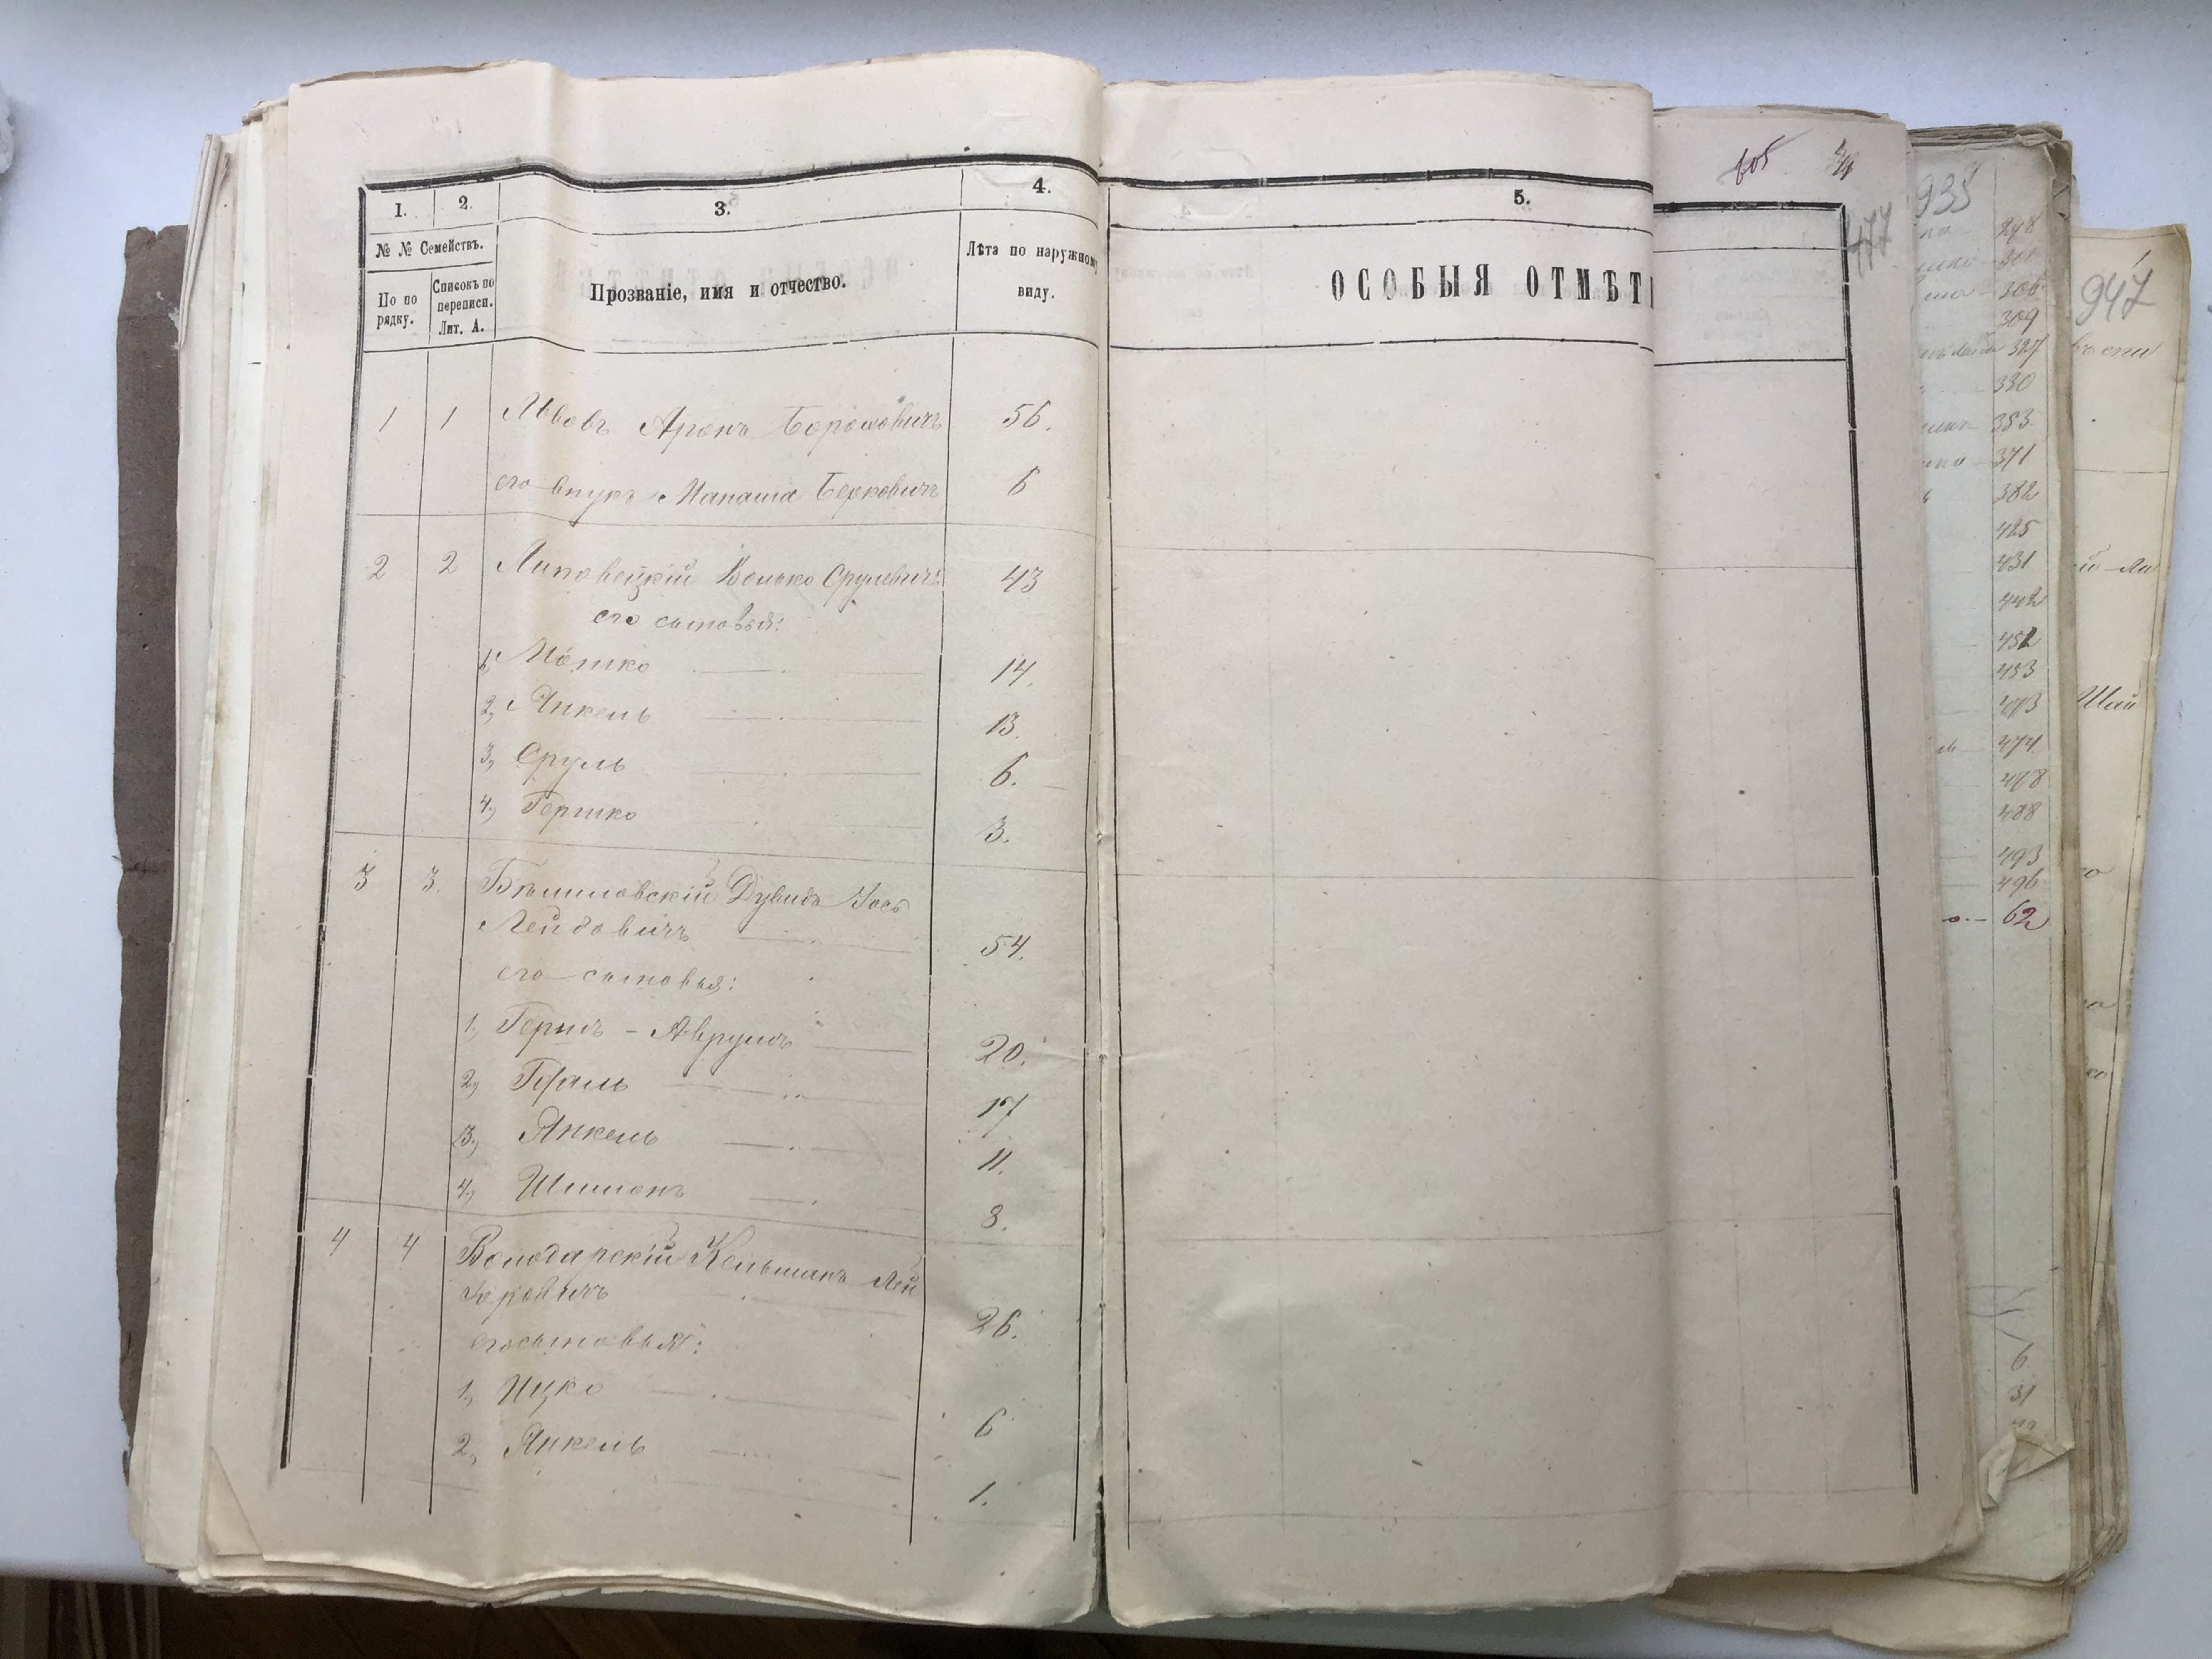 1. 2. 3. 4.
№ № Семействъ. Прозваніе, имя и отчество. Лѣта по наружному виду.
По по рядку. Списокъ по переписи. Лит. А.
1 1 Львовъ Аронъ Борохович 56.
его внукъ Манаша Берковичъ 6
2 2 Липовецкій Волько Срулевичъ 43
его сыновья:
1, Мошко 14.
2, Янкель 13.
3, Сруль 6.
4, Гершко 3.
3 3. Бѣлиловскій Дувидъ Іось
Лейбовичъ 54.
его сыновья:
1, Гершъ - Аврумъ 20.
2, 17
3, Янкель 11.
4, Шимонъ 8.
4 4 Володарскій Кельманъ Лей
зеровичъ 26.
его сыновья:
1, Ицко 6
2, Янкель 1.
5.
ОСОБЫЯ ОТМѢТ
605
477
935
298
301
306
309
327
330
353
371
382
425
431
442
452
453
473
474
478
488
493
496
62
6
31
947
Шай